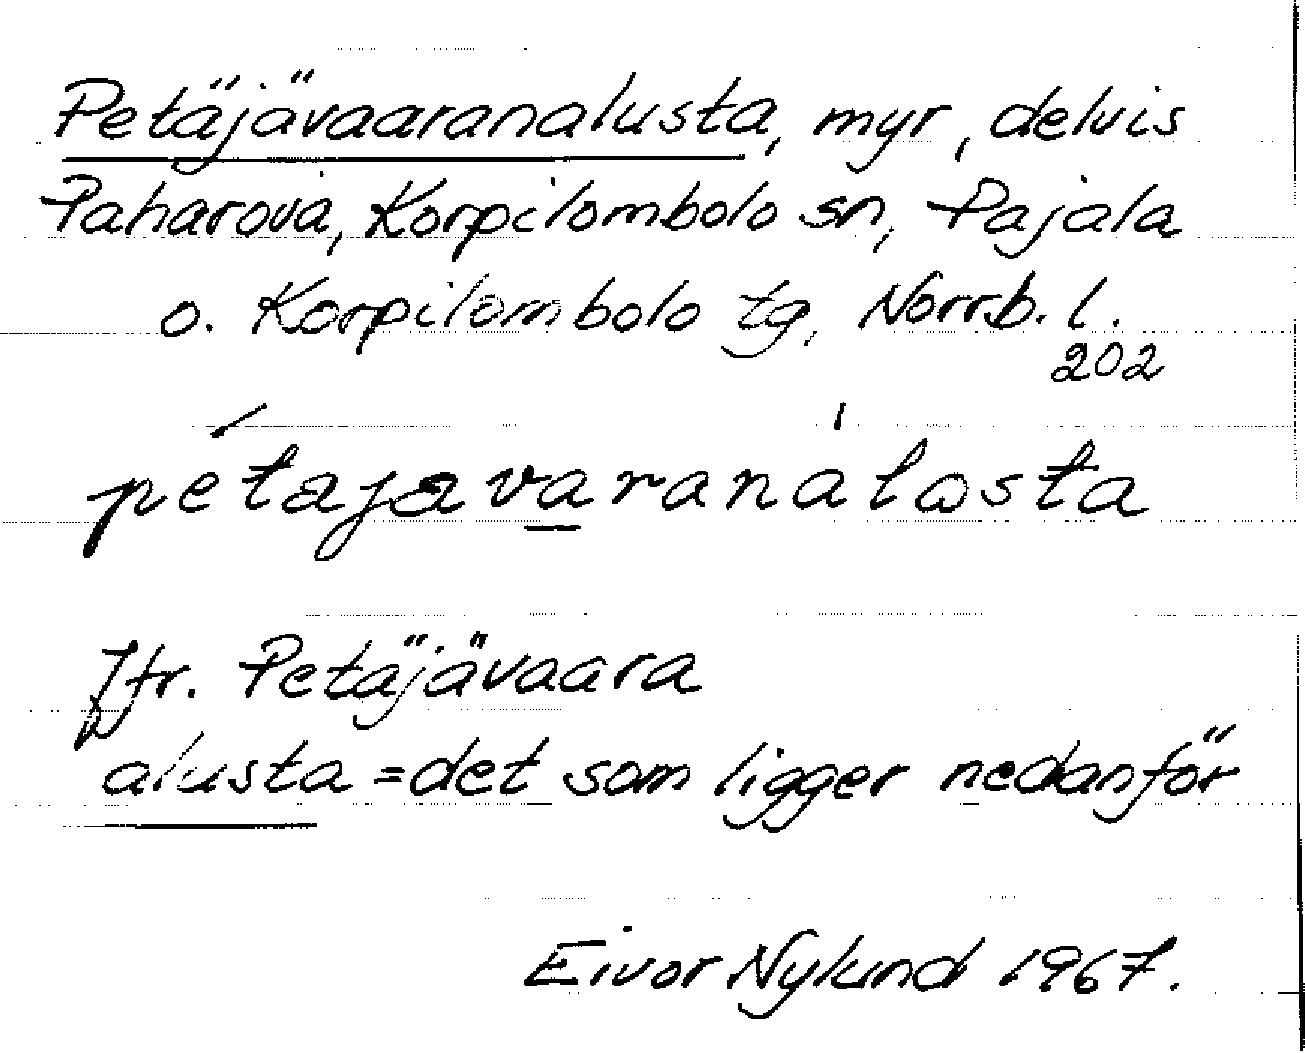 Petäjävaaranalusta, myr, delvis
Paharova, Korpilombolo sn, Pajala
o. Korpilombolo tg, Norrb. l.
202
pétajava̱ranálosta
Jfr. Petäjävaara
alusta = det som ligger nedanför
Eivor Nylund 1967.